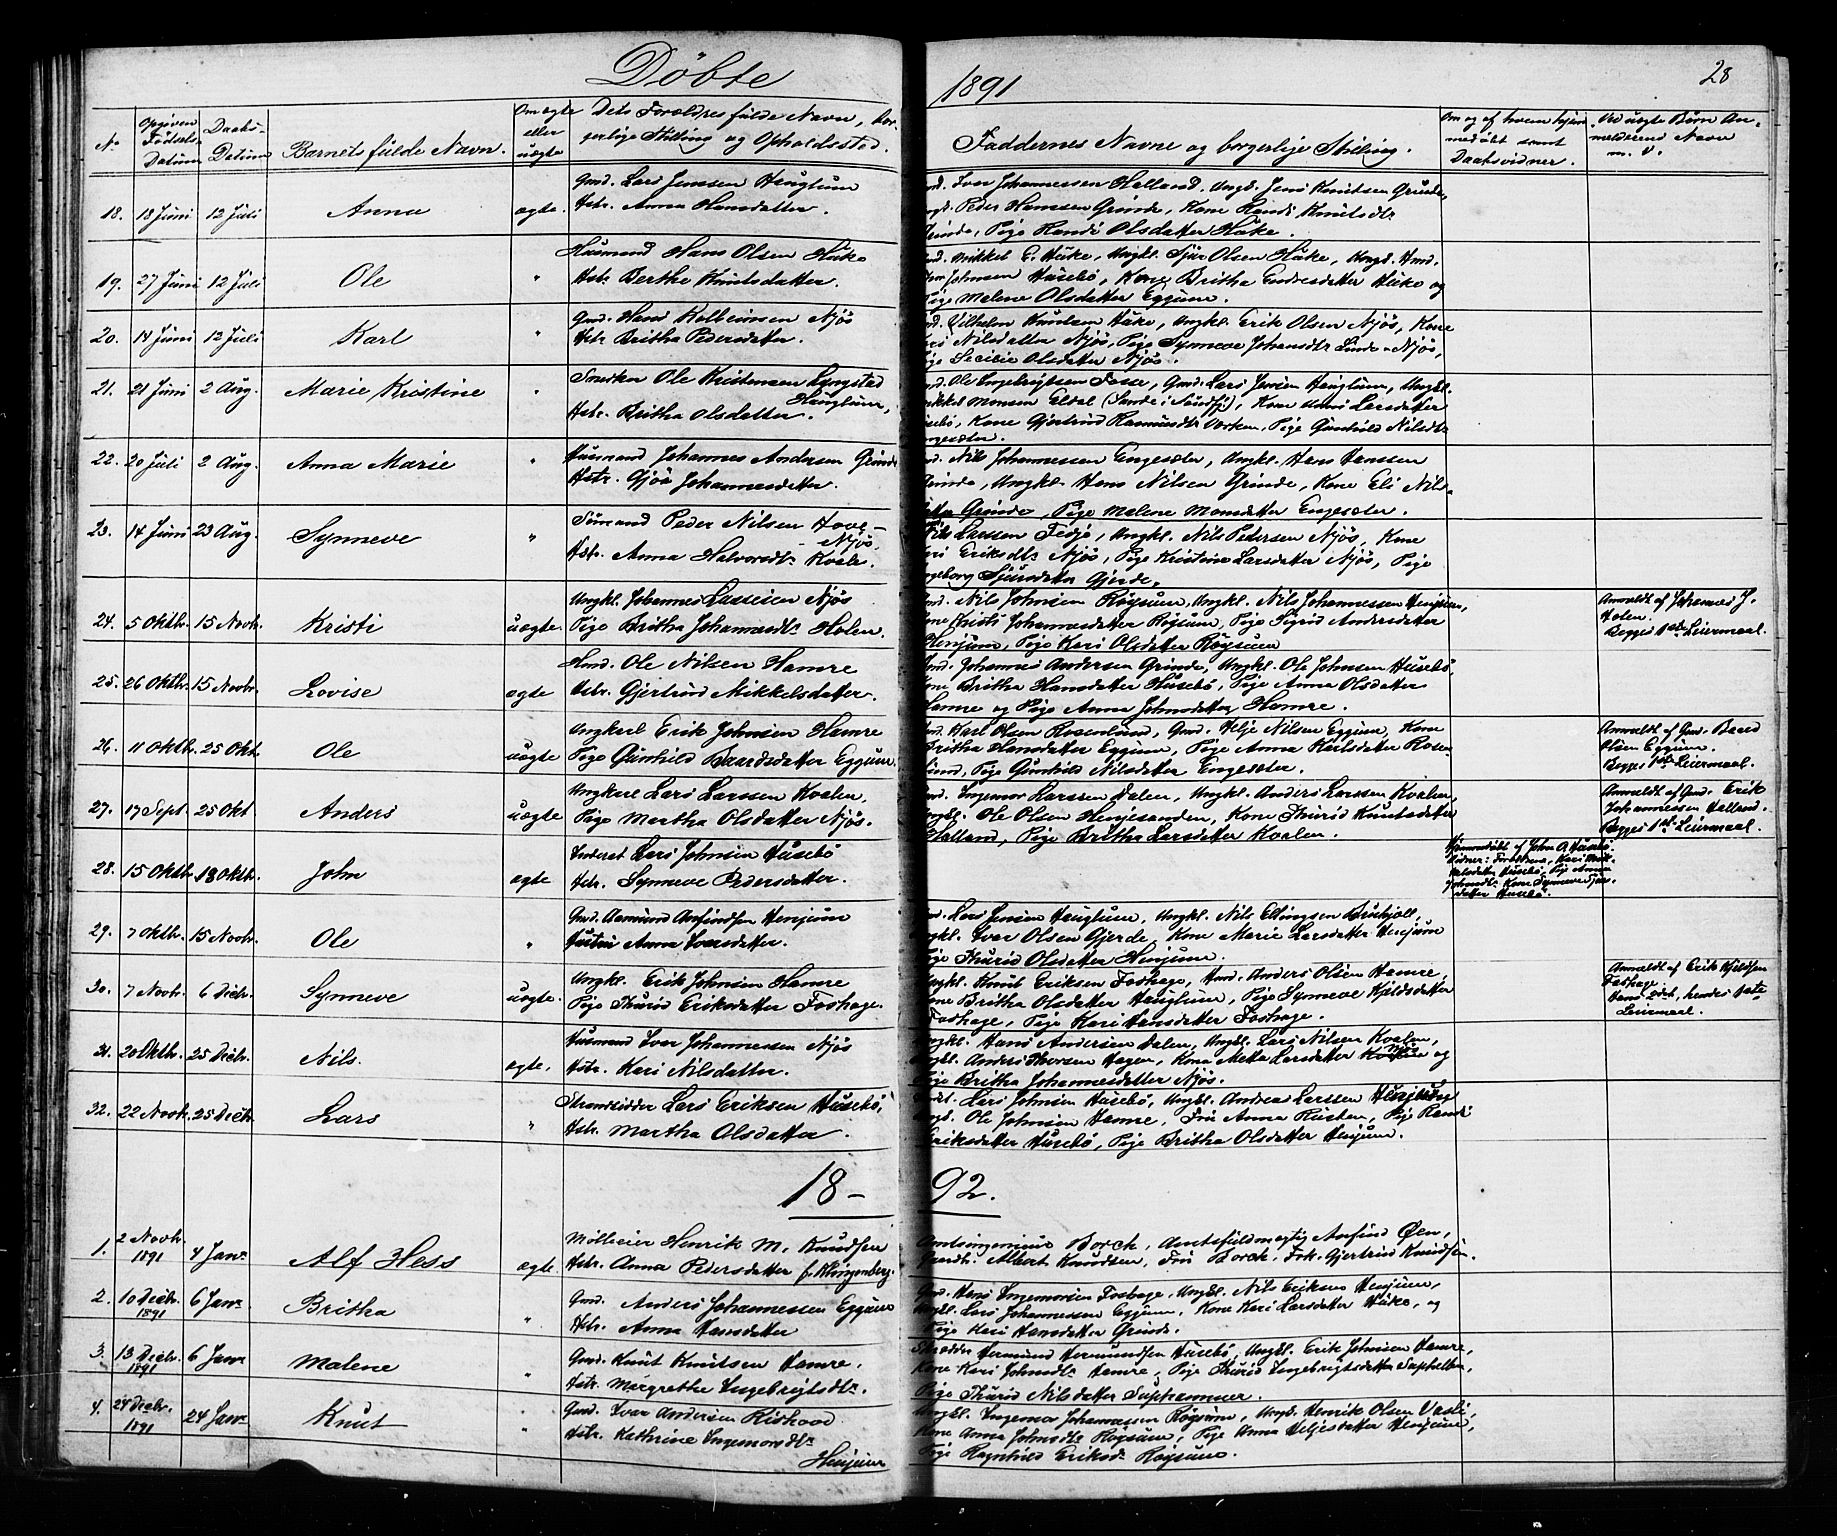 Döbte
1891
28
No
Opgiven Fødsels Datum
Daabs-Datum
Barnets fulde Navn.
Om ægte eller uægte
Dets Forældres fulde Navn, borgerlige Stilling og Opholdssted.
Faddernes Navne og borgerlige Stilling.
Om og af hvem hjemmedöbt samt Daabsvidner.
Ved uægte Börn Anmelderens Navn m. v.
18. 18 Juni 12 Juli Anna ægte.
Gmd. Lars Jensen Henglum
Hstr. Anna Hansdatter.
Ivar Johannessen Halland, Ungk. Jens Knutsen Grinde,
Peder Hansen Grinde, Kone Randi Knutsdtr
Grinde, Pige Randi Olsdatter Häke.
19. 27 Juni 12 Juli Ole "
Husmand Hans Olsen Häke
Hstr. Berthe Knutsdatter.
Mikkel E. Häke, Ungkl. Sjur Olsen Häke, Ungk. Hmd.
Johnsen Husebö, Kone Britha Endresdatter Häke og
Pige Malene Olsdatter Eggum.
20. 14 Juni 12 Juli Karl "
Gmd. Hans Kolbeinsen Njös
Hstr Britha Pedersdatter.
Vilhelm Knutsen Häke, Ungkl. Erik Olsen Njös, Kone
Nilsdatter Njös, Pige Synneve Johansdtr Linde-Njös,
Pige Secilie Olsdatter Njös.
21. 21 Juni 2 Aug. Marie Kristine "
Snedker Ole Kristensen Lyngstad
Henglum,
Hstr. Britha Olsdatter.
Ole Engebrigtsen Fosse, Gmd. Lars Jensen Henglum, Ungkl.
Mikkel Monsen Eldal (Sande i Søndfj), Kone Larsdatter
Husebö, Kone Gjertrud Rasmusdtr Varken, Pige Gunhild Nilsdtr
Engesæter.
22. 20 Juli 2 Aug. Anna Marie "
Husmand Johannes Andersen Grinde
Hstr. Gjöa Johannesdatter.
Nils Johannessen Engesæter, Ungkl. Hans Hanssen
Grinde, Ungkl. Hans Nilsen Grinde, Kone Eli Nils-
datter Grinde, Pige Malene Monsdatter Engesæter.
23. 14 Juni 23 Aug. Synneve "
Peder Nilsen Hove-
Njös.
Hstr. Anna Halvorsdtr Kvale.
Larssen Fedje, Ungkl. Nils Pedersen Njös, Kone
Kari Eriksdtr Njös, Pige Kristine Larsdatter Njös, Pige
Ingeborg Sjursdatter Gjerde.
24. 5 Oktbr. 15 Novbr. Kristi uægte.
Ungkl. Johannes Lassesen Njös
Pige Britha Johannesdtr Holen.
Nils Johnsen Röysum, Ungkl. Nils Johannessen Henjum,
Kone Kristi Johannesdatter Röysum, Pige Sigrid Andersdatter
Henjum, Pige Kari Olsdatter Röysum
Anmeldt af Johannes J.
Holen.
Begges 1ste Leiermaal.
25. 26 Oktbr. 15 Novbr. Lovise ægte
Hmd. Ole Nilsen Hamre
Hstr. Gjertrud Mikkelsdatter.
Johannes Andersen Grinde, Ungkl. Ole Johnsen Husebö,
Kone Britha Hansdatter Husebö, Pige Anna Olsdatter
Hamre og Pige Anna Johnsdatter Hamre.
26. 11 Oktbr. 25 Okt. Ole uægte
Ungkarl Erik Johnsen Hamre
Pige Gunhild Baardsdatter Eggum.
Karl Olsen Rosenlund, Gmd. Helje Nilsen Eggum, Kone
Britha Hansdatter Eggum, Pige Anna Karlsdatter Rosen
lund, Pige Gunhild Nilsdatter Engesæter.
Anmeldt af Gmd. Baard
Olsen Eggum.
Begges 1ste Leiermaal.
27. 17 Sept. 25 Okt Anders uægte
Ungkarl Lars Larssen Kvalen,
Pige Martha Olsdatter Njös.
Ingemor Larssen Dalen, Ungkl. Anders Larssen Kvalen,
Ole Olsen Henjesanden, Kone Thurid Knutsdatter
Halland, Pige Britha Larsdatter Kvalen.
Anmeldt af Gmd. Erik
Johannessen Halland.
Begges 1ste Leiermaal.
28. 15 Oktbr. 18 Oktbr. John ægte
Inderst Lars Johnsen Husebö
Hstr. Synneve Pedersdatter.
Hjemmedöbt af John A. Husebö.
Vidner: Forældrene, Kari Mik-
kelsdatter Husebö, Pige Anna
Johnsdtr. Kone Synneve
datter Husebö.
29. 7 Oktbr. 15 Novbr. Ole "
Gmd. Aamund Anfindsen Henjum
Hustru Anna Ivarsdatter.
Lars Jensen Henglum, Ungkl. Nils Ellingsen
Ungkl. Ivar Olsen Gjerde, Kone Marie Larsdatter Henjum
Pige Thurid Olsdatter Henjum.
30. 7 Novbr. 6 Decbr. Synneve uægte
Ungkl. Erik Johnsen Hamre
Pige Thurid Eriksdatter Foshage.
Ungkl. Knut Eriksen Foshage, Hmd. Anders Olsen Hamre,
Kone Britha Olsdatter Henglum, Pige Synneve Kjeldsdatter
Foshage, Pige Kari Hansdatter Foshage.
Anmeldt af Erik Kjeldsen
Foshage
Hans 2det, hendes 1ste
Leiermaal.
31. 20 Oktbr. 25 Decbr. Nils. ægte.
Husmand Ivar Johannessen Njös
Hstr. Kari Nilsdatter.
Ungkl. Hans Andersen Dalen, Ungkl. Lars Nilsen Kvalen,
Ungkl. Anders Thorsen Hagen, Kone Metta Larsdatter og
Pige Britha Johannesdatter Njös.
32. 22 Novbr. 25 Decbr. Lars "
Strandsidder Lars Eriksen Husebö,
Hstr. Martha Olsdatter.
Lars Johnsen Husebö, Ungkl. Andreas Larssen
Ole Johnsen Hamre, Fru Anna Rusten, Pige Randi
Eriksdatter Husebö, Pige Britha Olsdatter Henjum.
18-92.
1. 2 Novbr. 1891 4 Janr Alf Hess ægte
Mölleeier Henrik M. Knudsen
Hstr. Anna Pedersdatter f. Klingenberg.
Amtsingeniør Borch, Amtsfuldmegtig Anfind Øen,
Albert Knudsen, Fru Borch, Frk. Gjertrud Knudsen.
2. 10 Decbr. 1891 6 Janr Britha "
Gmd. Anders Johannessen Eggum
Hstr. Anna Hansdatter
Gmd. Hans Ingemorsen Foshage, Ungkl. Nils Eriksen Henjum,
Ungkl. Lars Johannessen Eggum, Kone Kari Larsdatter Häke, og
Pige Kari Hansdatter Grinde.
3. 13 Decbr. 1891 6 Janr Malene "
Gmd. Knut Knutsen Hamre.
Hstr. Margrethe Ingebrigtsdtr.
Skrædder Hermund Hermundsen Husebö, Ungkl. Erik Johnsen Hamre,
Kone Kari Johnsdtr Hamre, Pige Thurid Ingebrigtsdatter Suphellen,
Pige Thurid Nilsdatter Suphammer.
4. 24 Decbr. 1891 24 Janr Knut "
Gmd. Ivar Andersen Rishovd
Hstr. Kathrine Ingemorsdtr
Henjum
Ungkl. Ingemor Johannessen Röysum, Ungk. Henrik Olsen Vasli,
Kone Anna Johnsdtr Röysum, Pige Anna Heljesdatter Henjum,
Pige Ragnhild Eriksdr. Röysum.